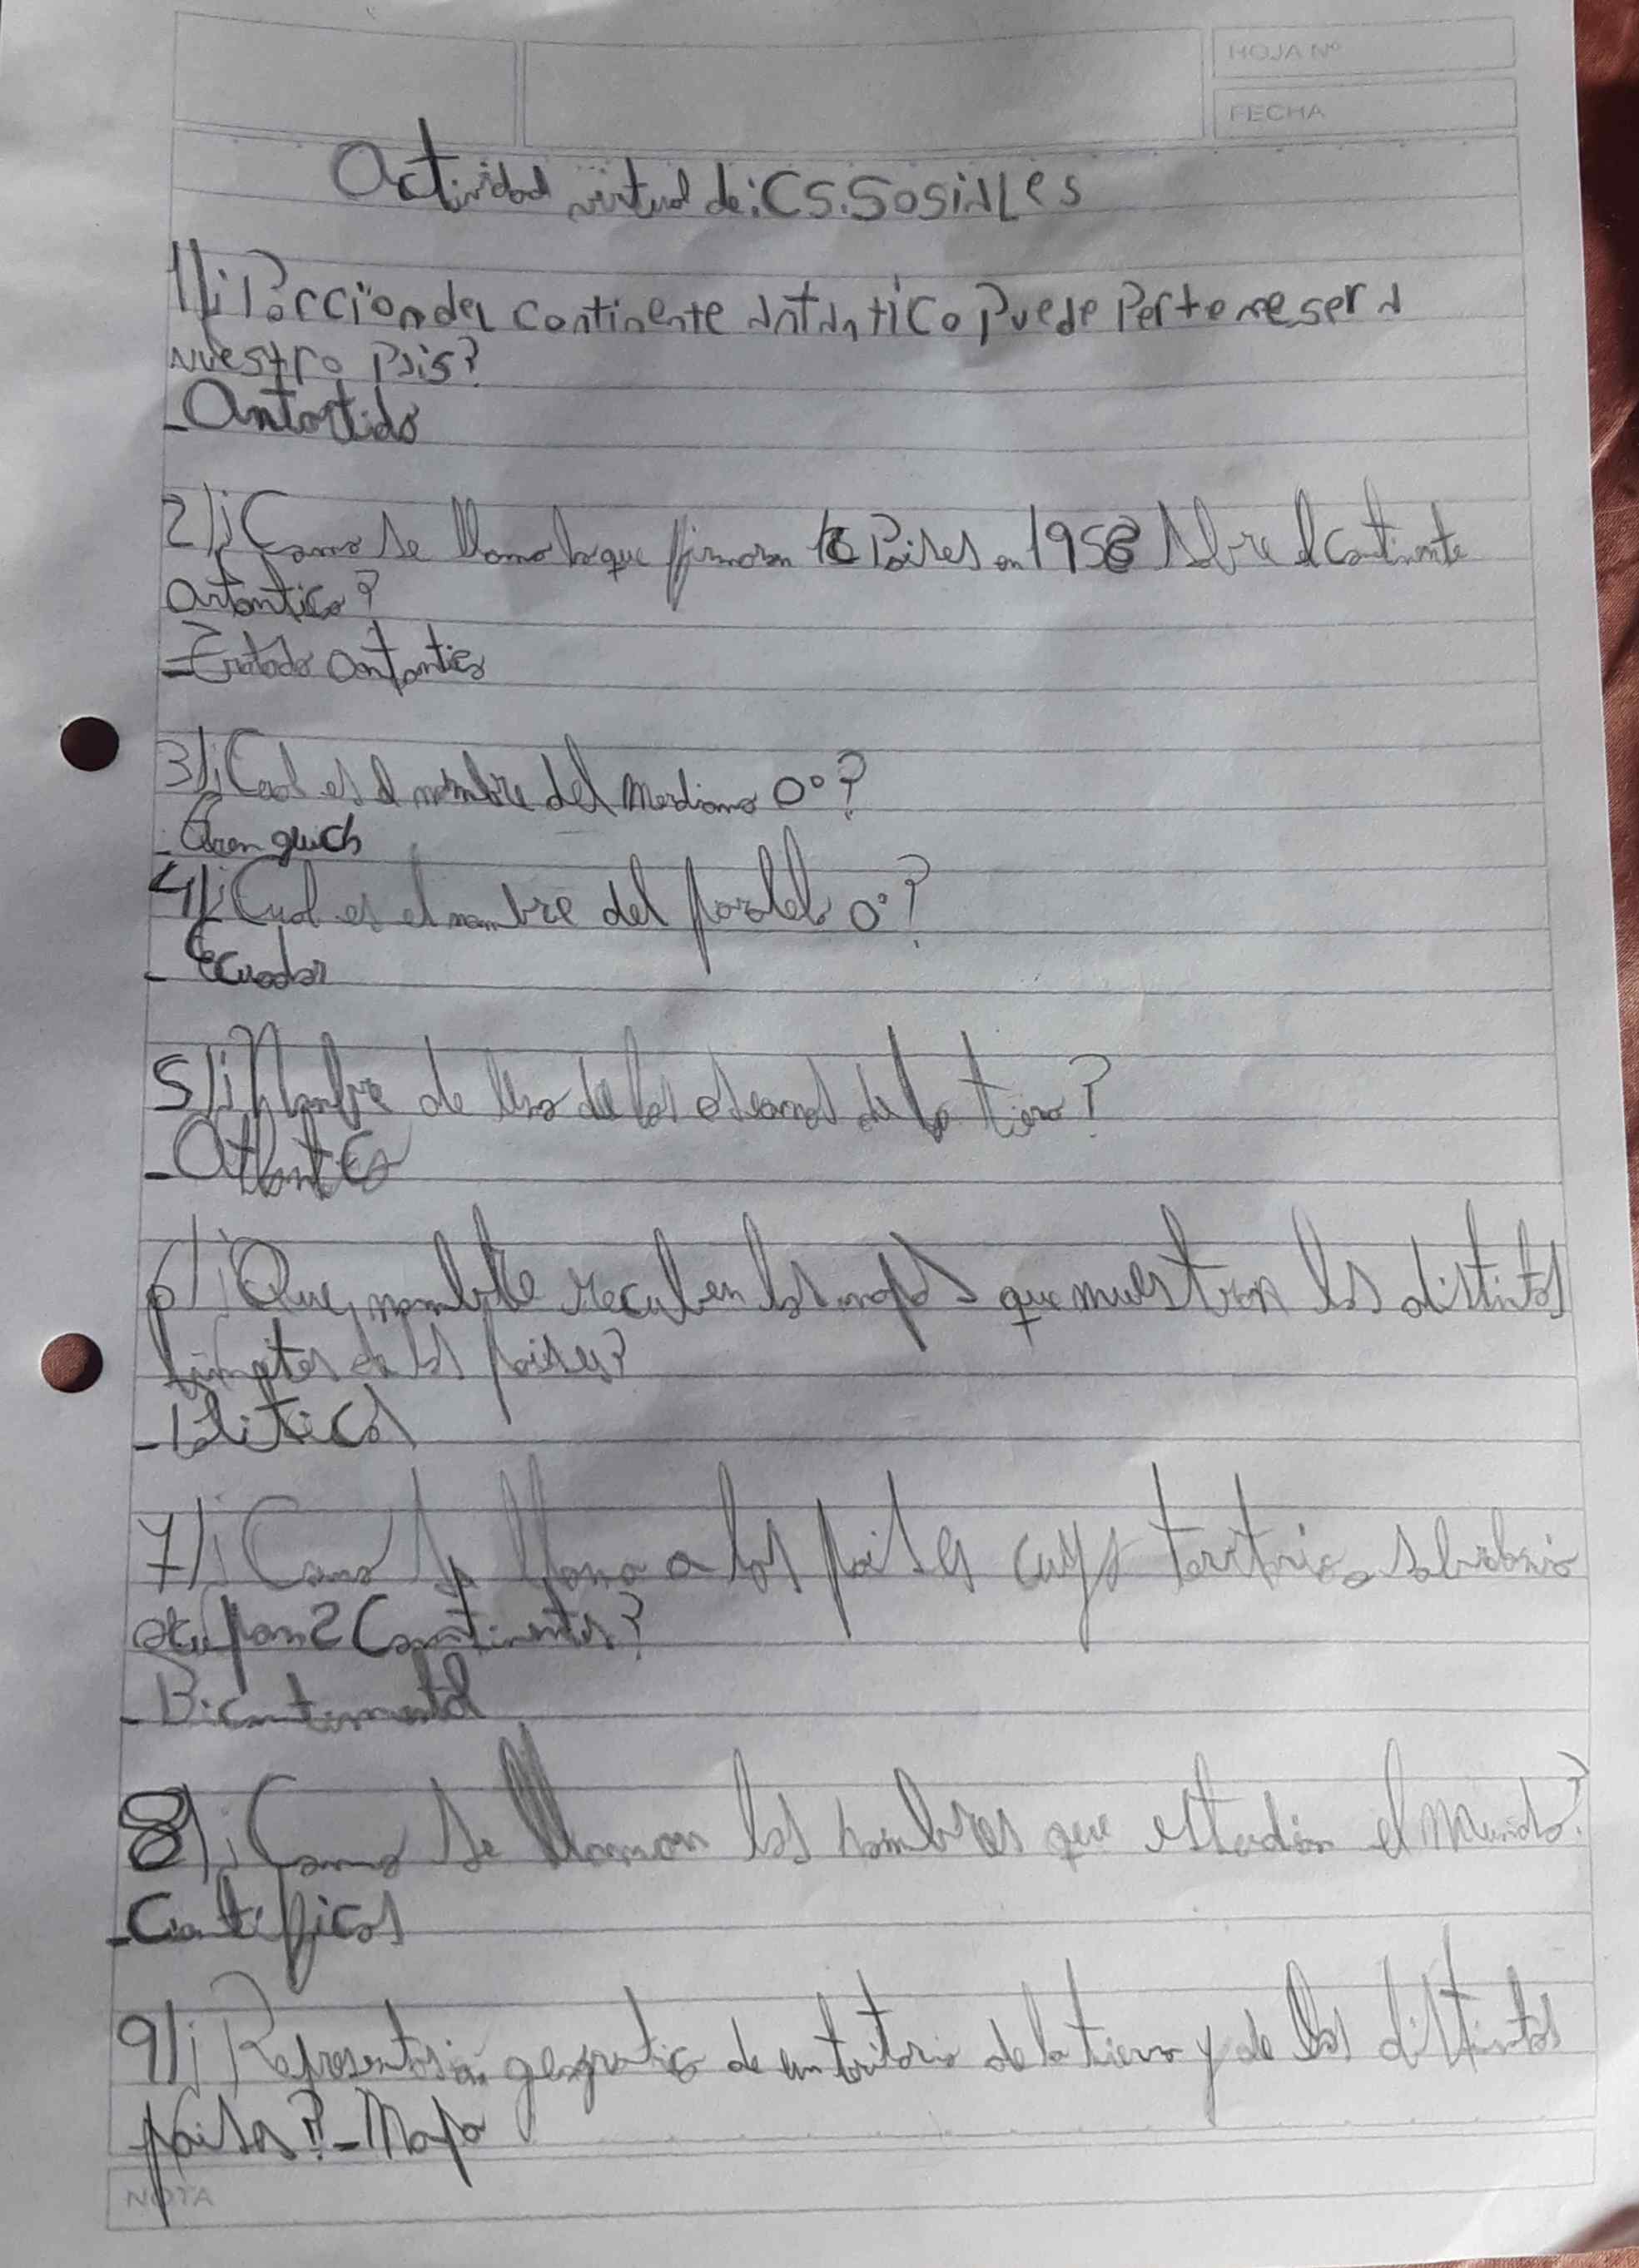 HOJA Nº
FECHA
Actividad virtual de: CS. Sosiales
1) ¿Porcción del continente antantico puede perteneser a
nuestro pais?
- Antartida
2) ¿Como se llama lo que firmaron 16 Paises en 1958 sobre el continente
antantico?
- Tratado antantico
3) ¿Cual es el nombre del meridiano 0°?
- Grenguich
4) ¿Cual es el nombre del paralelo 0°?
- Ecuador
5) ¿Nombre de uno de los oseanos de la tierra?
- Atlantico
6) ¿Que nombre reciben los mapas que muestran los distintos
limites de los paises?
- Politicos
7) ¿Como se llama a los paises cuyo territorio soberanio
ocupan 2 Continentes?
- Bicontinental
8) ¿Como se llaman los hombres que estudian el mundo?
- Cientificos
9) ¿Representasion geografica de un teritorio de la tierra y de los distintos
paises? - Mapa
NOTA